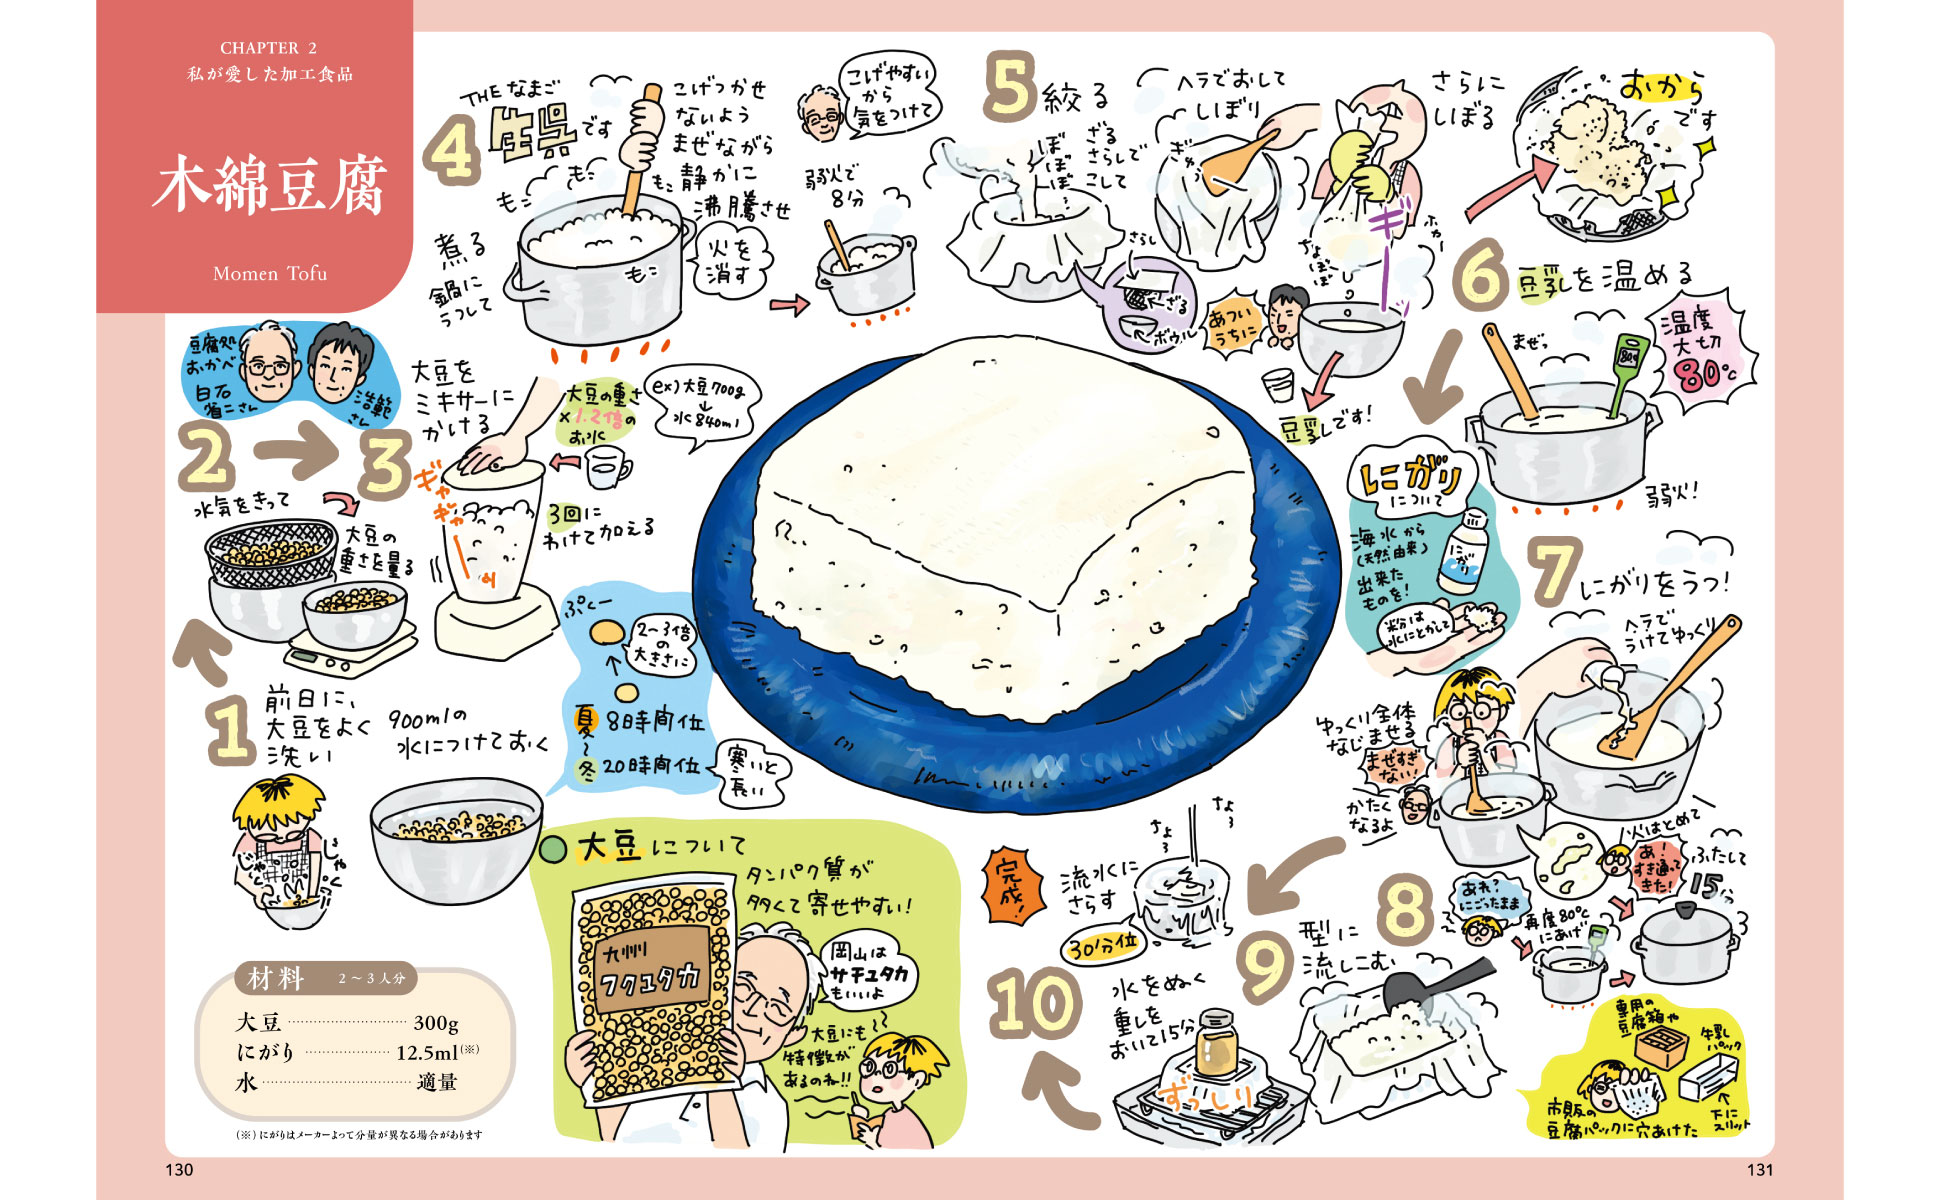 CHAPTER 2
私が愛した加工食品
木綿豆腐
Momen Tofu
豆腐処
おかべ
白石
省二さん
浩範
さん
1
前日に、
大豆をよく
洗い
じゃ
じゃ
900mlの
水につけておく
ぷくー
2〜3倍
の
大きさに
夏 8時間位
〜
冬 20時間位
寒いと
長い
2
水気をきって
3
大豆の
重さを量る
大豆を
ミキサーに
かける
ギャ
ギャ
大豆の重さ
×1.2倍の
お水
ex)大豆700g
↓
水840ml
3回に
わけて加える
4
THEなまご
生呉です
煮る
鍋に
うつして
もこ
もこ
もこ
もこ
こげつかせ
ないよう
まぜながら
静かに
沸騰させ
火を
消す
こげやすい
から
気をつけて
弱火で
8分
5
絞る
ぼ
ぼ
ぼ
ざる
さらしで
こして
さらし
ざる
ボウル
ヘラでおして
しぼり
ぎゅっ
さらに
しぼる
ギー
ちょぼぼ
おから
です
あつい
うちに
豆乳です!
6
豆乳を温める
まぜっ
80℃
温度
大切
80℃
弱火!
にがり
について
海水から
(天然由来)
出来た
ものを!
にがり
粉は
水にとかして
7
にがりをうつ!
ヘラで
うけてゆっくり
ゆっくり全体
なじませる
まぜすぎ
ない!
かたく
なるよ
8
火はとめて
あ!
すき通って
きた!
ふたして
15分
あれ?
にごったまま
再度80℃
にあげ
9
型に
流しこむ
専用の
豆腐箱や
牛乳
パック
下に
スリット
市販の
豆腐パックに穴あけた
10
水をぬく
重しを
おいて15分
ずっしり
ちょろ
ちょろ
流水に
さらす
30分位
完成!
大豆について
タンパク質が
多くて寄せやすい!
九州
フクユタカ
岡山は
サチユタカ
もいいよ
大豆にも
特徴が
あるのね!!
材料 2〜3人分
大豆 300g
にがり 12.5ml(※)
水 適量
(※)にがりはメーカーよって分量が異なる場合があります
130
131